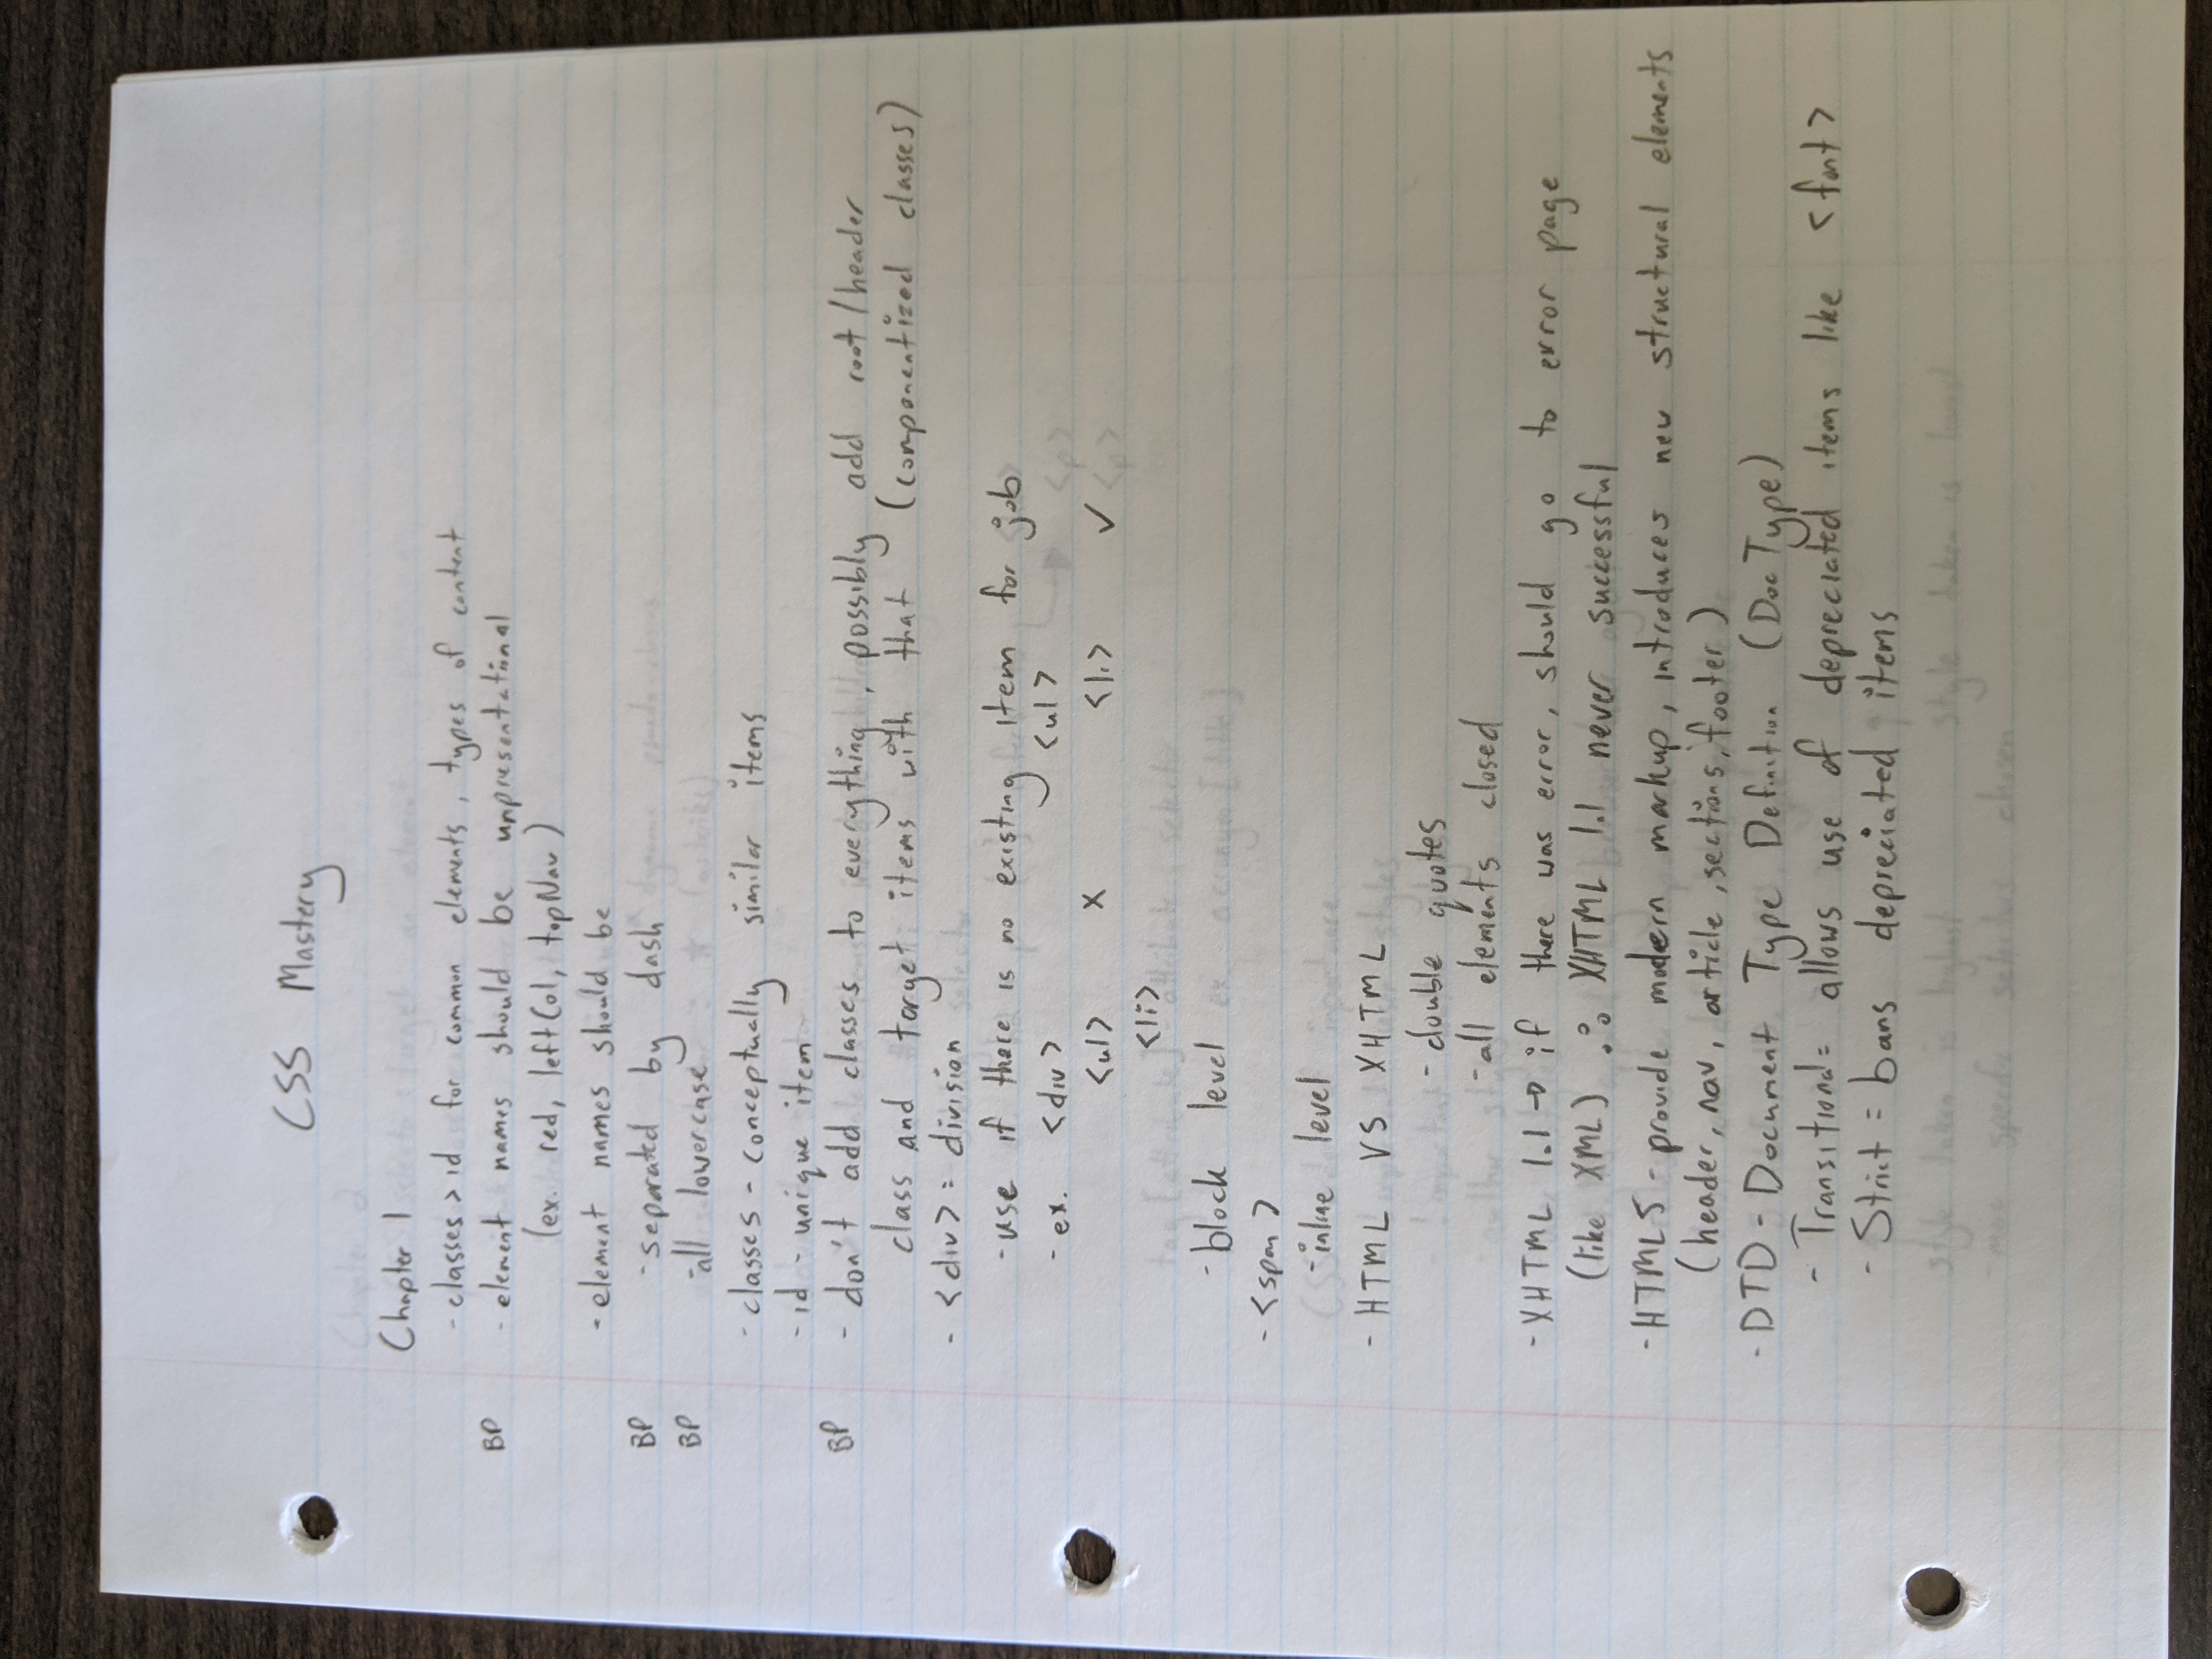 CSS Mastery
Chapter 1
- classes > id for common elements, types of content
BP - element names should be unpresentational
(ex. red, leftCol, topNav)
- element names should be
BP - separated by dash
BP - all lowercase
- classes - conceptually similar items
- id - unique item
BP - don't add classes to everything, possibly add root/header
class and target items with that (componentized classes)
- <div> = division
- use if there is no existing item for job
- ex. <div> <ul>
<ul> X <li> ✓
<li>
- block level
- <span>
- inline level
- HTML VS XHTML
- double quotes
- all elements closed
- XHTML 1.1 → if there was error, should go to error page
(like XML) ∴ XHTML 1.1 never successful
- HTML5 - provide modern markup, introduces new structural elements
(header, nav, article, sections, footer)
- DTD - Document Type Definition (DocType)
- Transitional = allows use of depreciated items like <font>
- Strict = bans depreciated items